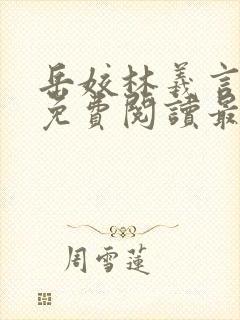 岳姣林義言
免費閱讀最
周雪蓮